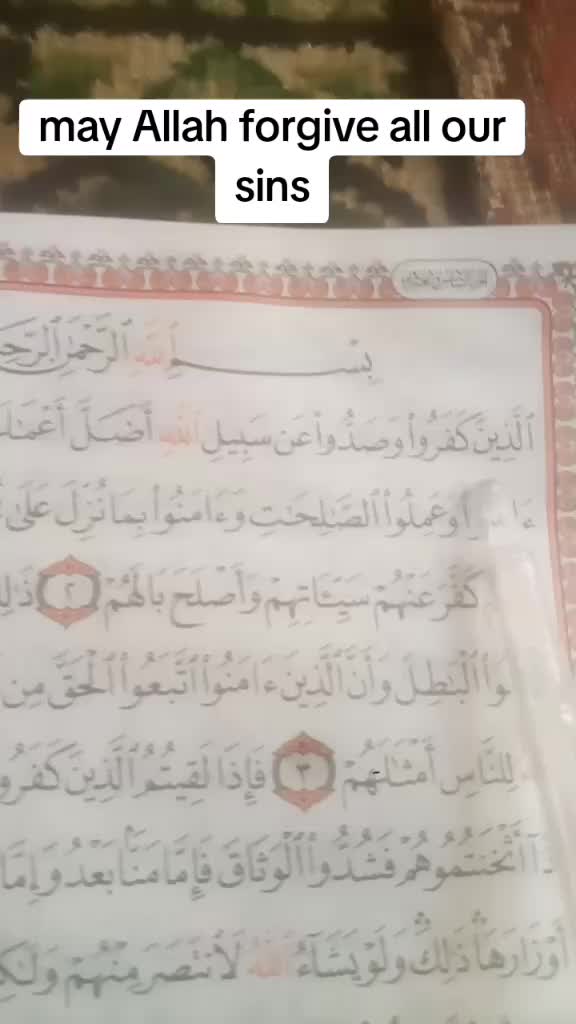 may Allah forgive all our
sins
بِسْمِ ٱللَّهِ ٱلرَّحْمَٰنِ
ٱلَّذِينَ كَفَرُوا۟ وَصَدُّوا۟ عَن سَبِيلِ ٱللَّهِ أَضَلَّ
وَعَمِلُوا۟ ٱلصَّٰلِحَٰتِ وَءَامَنُوا۟ بِمَا نُزِّلَ عَلَىٰ
كَفَّرَ عَنْهُمْ سَيِّـَٔاتِهِمْ وَأَصْلَحَ بَالَهُمْ ٢
ٱلْبَٰطِلَ وَأَنَّ ٱلَّذِينَ ءَامَنُوا۟ ٱتَّبَعُوا۟ ٱلْحَقَّ مِن
لِلنَّاسِ أَمْثَٰلَهُمْ ٣ فَإِذَا لَقِيتُمُ ٱلَّذِينَ
أَثْخَنتُمُوهُمْ فَشُدُّوا۟ ٱلْوَثَاقَ فَإِمَّا مَنًّۢا بَعْدُ وَإِمَّا
أَوْزَارَهَا ذَٰلِكَ وَلَوْ يَشَآءُ ٱللَّهُ لَٱنتَصَرَ مِنْهُمْ